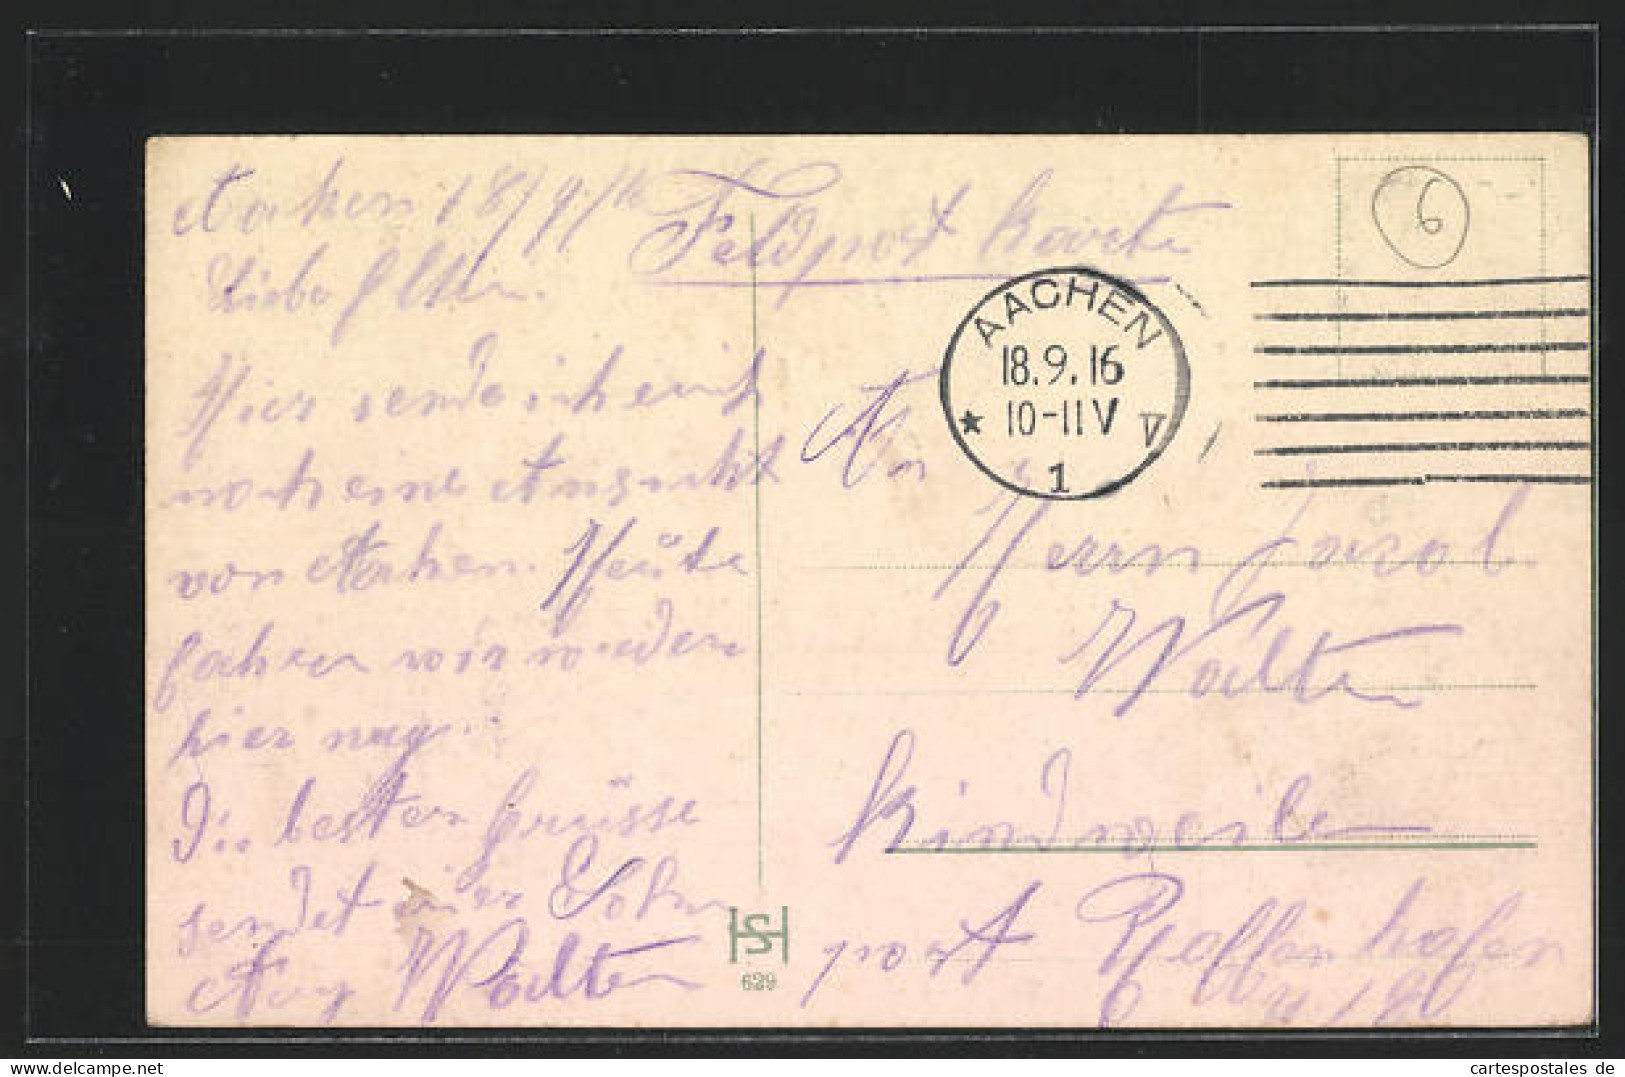 Aachen 18/9/16
Feldpost Karte
Liebe Eltern.
Hier sende ich euch
noch eine Ansicht
von Aachen. Heute
fahren wir wieder
hier weg.
Die besten Grüsse
sendet euer Sohn
Aug Walter
AACHEN
18.9.16
10-11V
1
6
An
Herrn Jacob
Walter
Kindweiler
post Pfaffenhofen
HS
629
cartespostales de